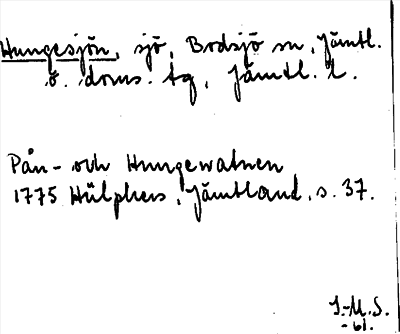 Hungesjön, sjö, Bodsjö sn, Jämtl.
ö. doms. tg, Jämtl. l.
Pån- och Hungewatnen
1775 Hülphers, Jämtland, s. 37.
I-M.S.
-61.